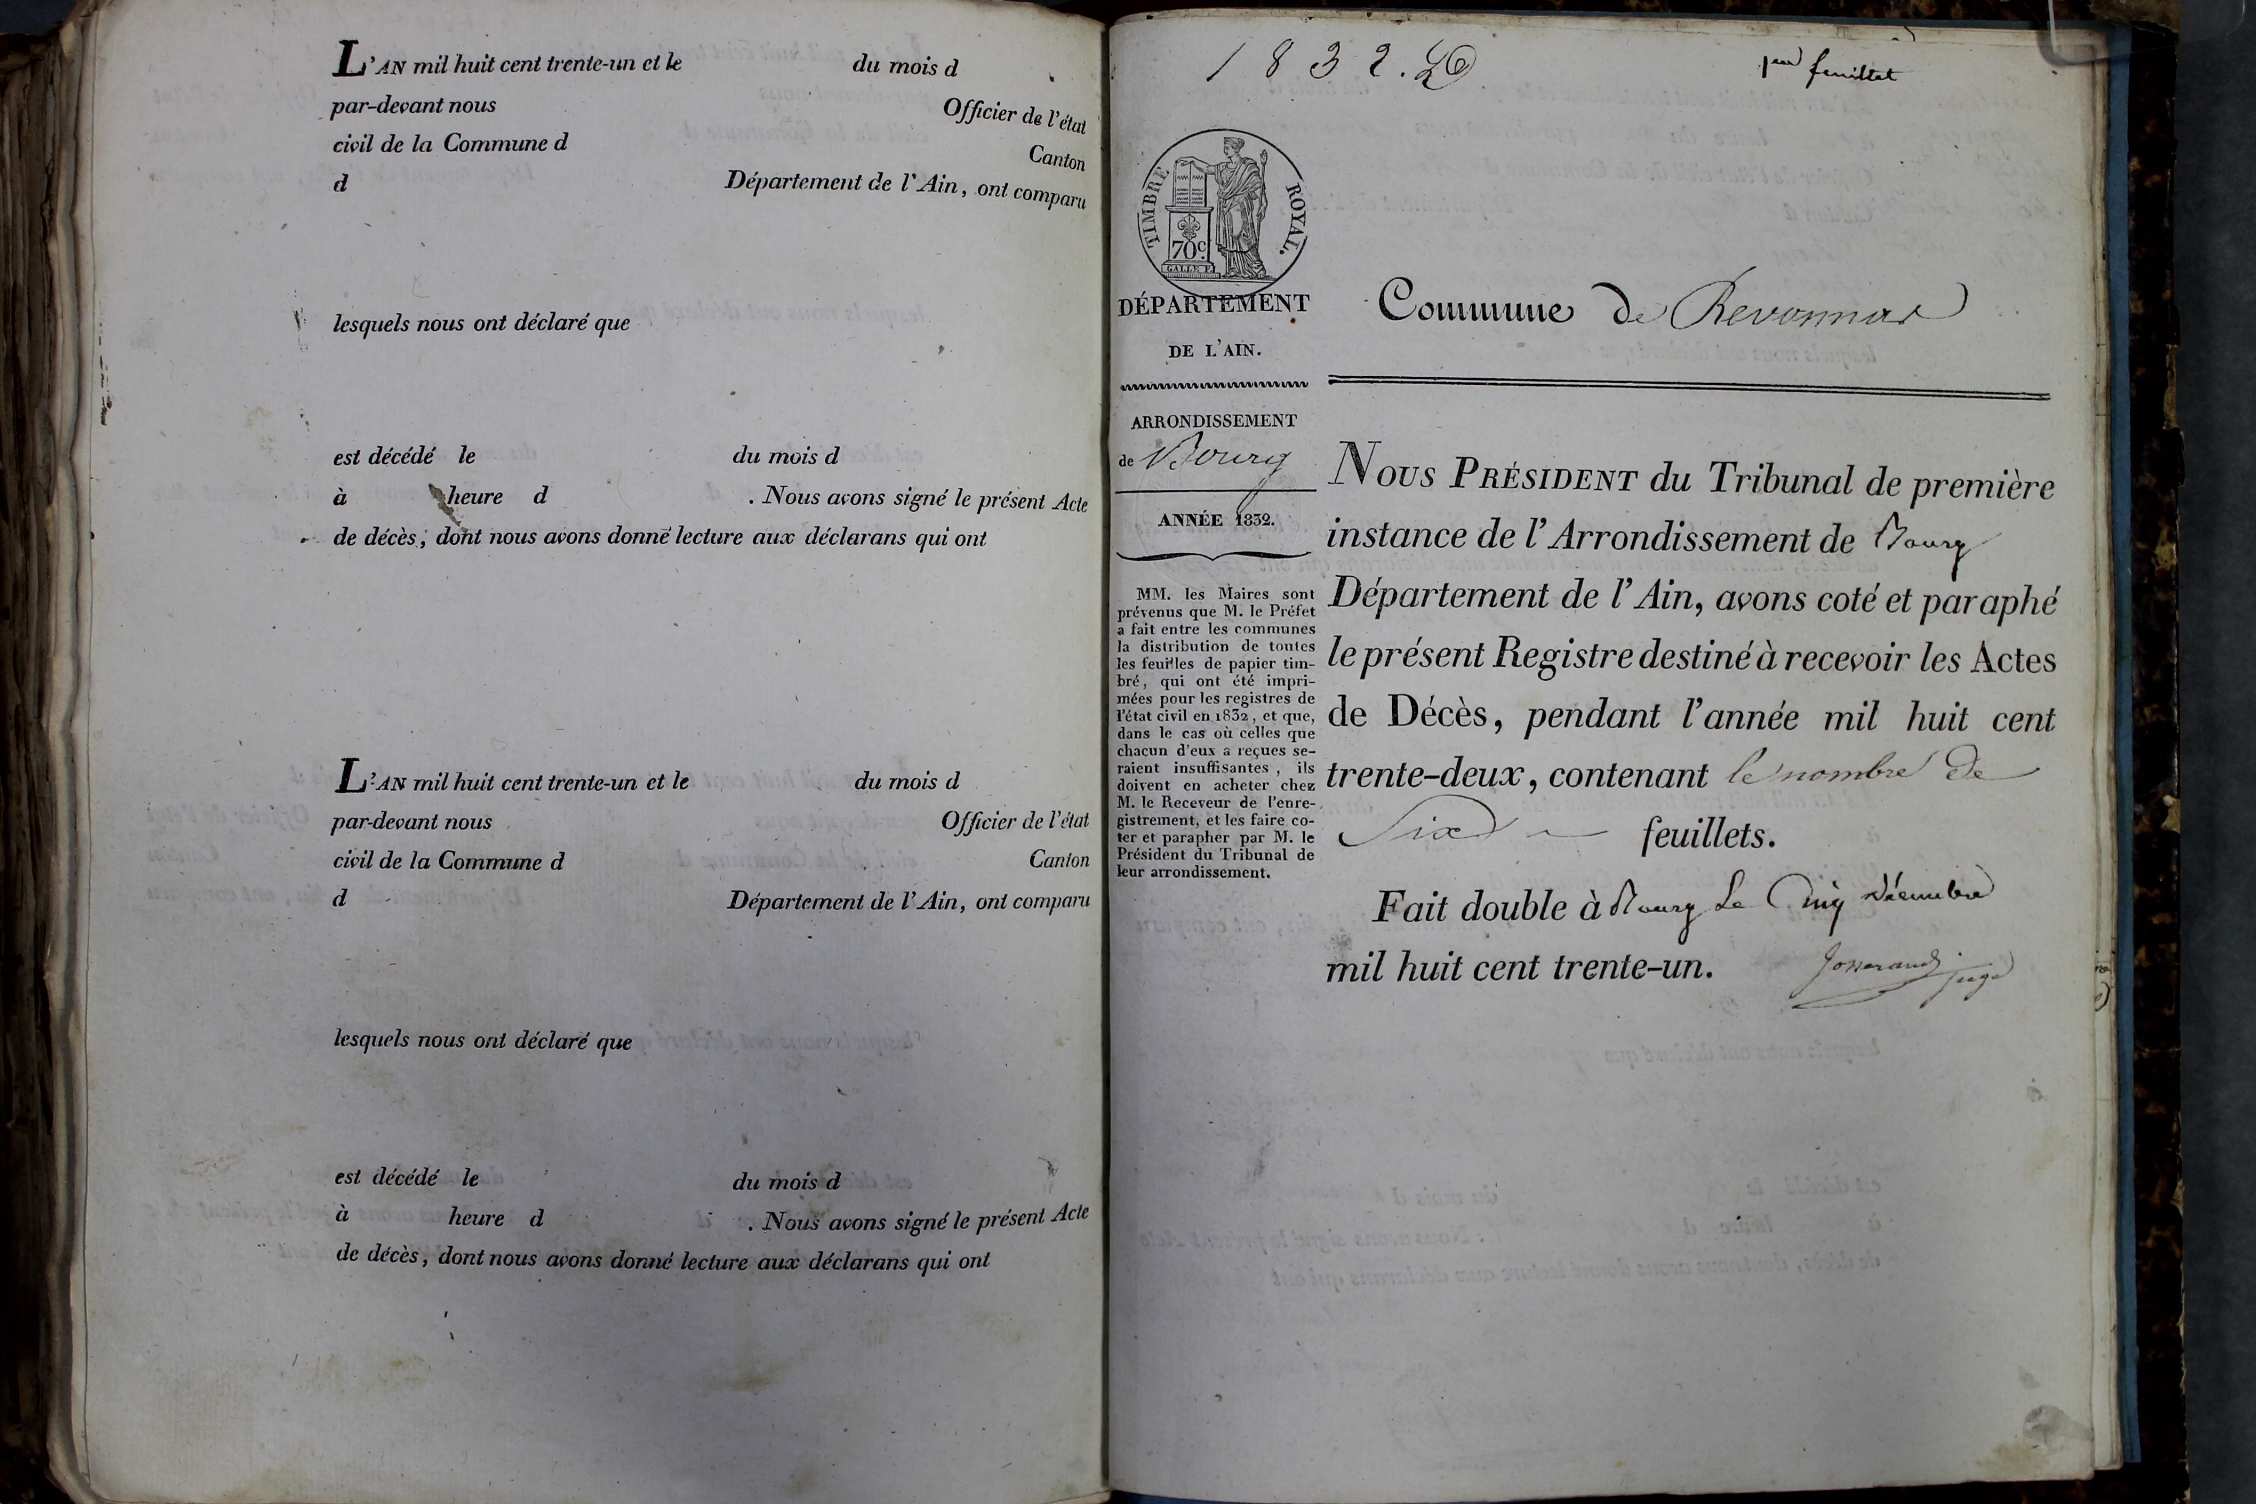 L'AN mil huit cent trente-un et le du mois d
par-devant nous Officier de l'état
civil de la Commune d Canton
d Département de l'Ain, ont comparu
lesquels nous ont déclaré que
est décédé le du mois d
à heure d . Nous avons signé le présent Acte
de décès, dont nous avons donné lecture aux déclarans qui ont
L'AN mil huit cent trente-un et le du mois d
par-devant nous Officier de l'état
civil de la Commune d Canton
d Département de l'Ain, ont comparu
lesquels nous ont déclaré que
est décédé le du mois d
à heure d . Nous avons signé le présent Acte
de décès, dont nous avons donné lecture aux déclarans qui ont
1832.
1er feuillet
TIMBRE ROYAL.
70c.
GALLE F.
DÉPARTEMENT
DE L'AIN.
ARRONDISSEMENT
de Bourg
ANNÉE 1832.
MM. les Maires sont
prévenus que M. le Préfet
a fait entre les communes
la distribution de toutes
les feuilles de papier tim-
bré, qui ont été impri-
mées pour les registres de
l'état civil en 1832, et que,
dans le cas où celles que
chacun d'eux a reçues se-
raient insuffisantes, ils
doivent en acheter chez
M. le Receveur de l'enre-
gistrement, et les faire co-
ter et parapher par M. le
Président du Tribunal de
leur arrondissement.
Commune de Revonnas
NOUS PRÉSIDENT du Tribunal de première
instance de l'Arrondissement de Bourg
Département de l'Ain, avons coté et paraphé
le présent Registre destiné à recevoir les Actes
de Décès, pendant l'année mil huit cent
trente-deux, contenant le nombre de
Six feuillets.
Fait double à Bourg Le Cinq décembre
mil huit cent trente-un.
Josserand juge